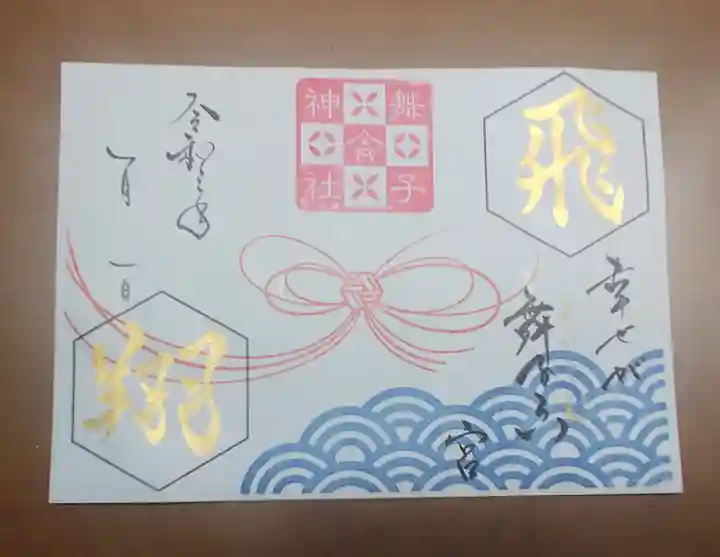 飛
翔
幸せが
舞
宮
舞子
六
神社
令和三年
一月一日